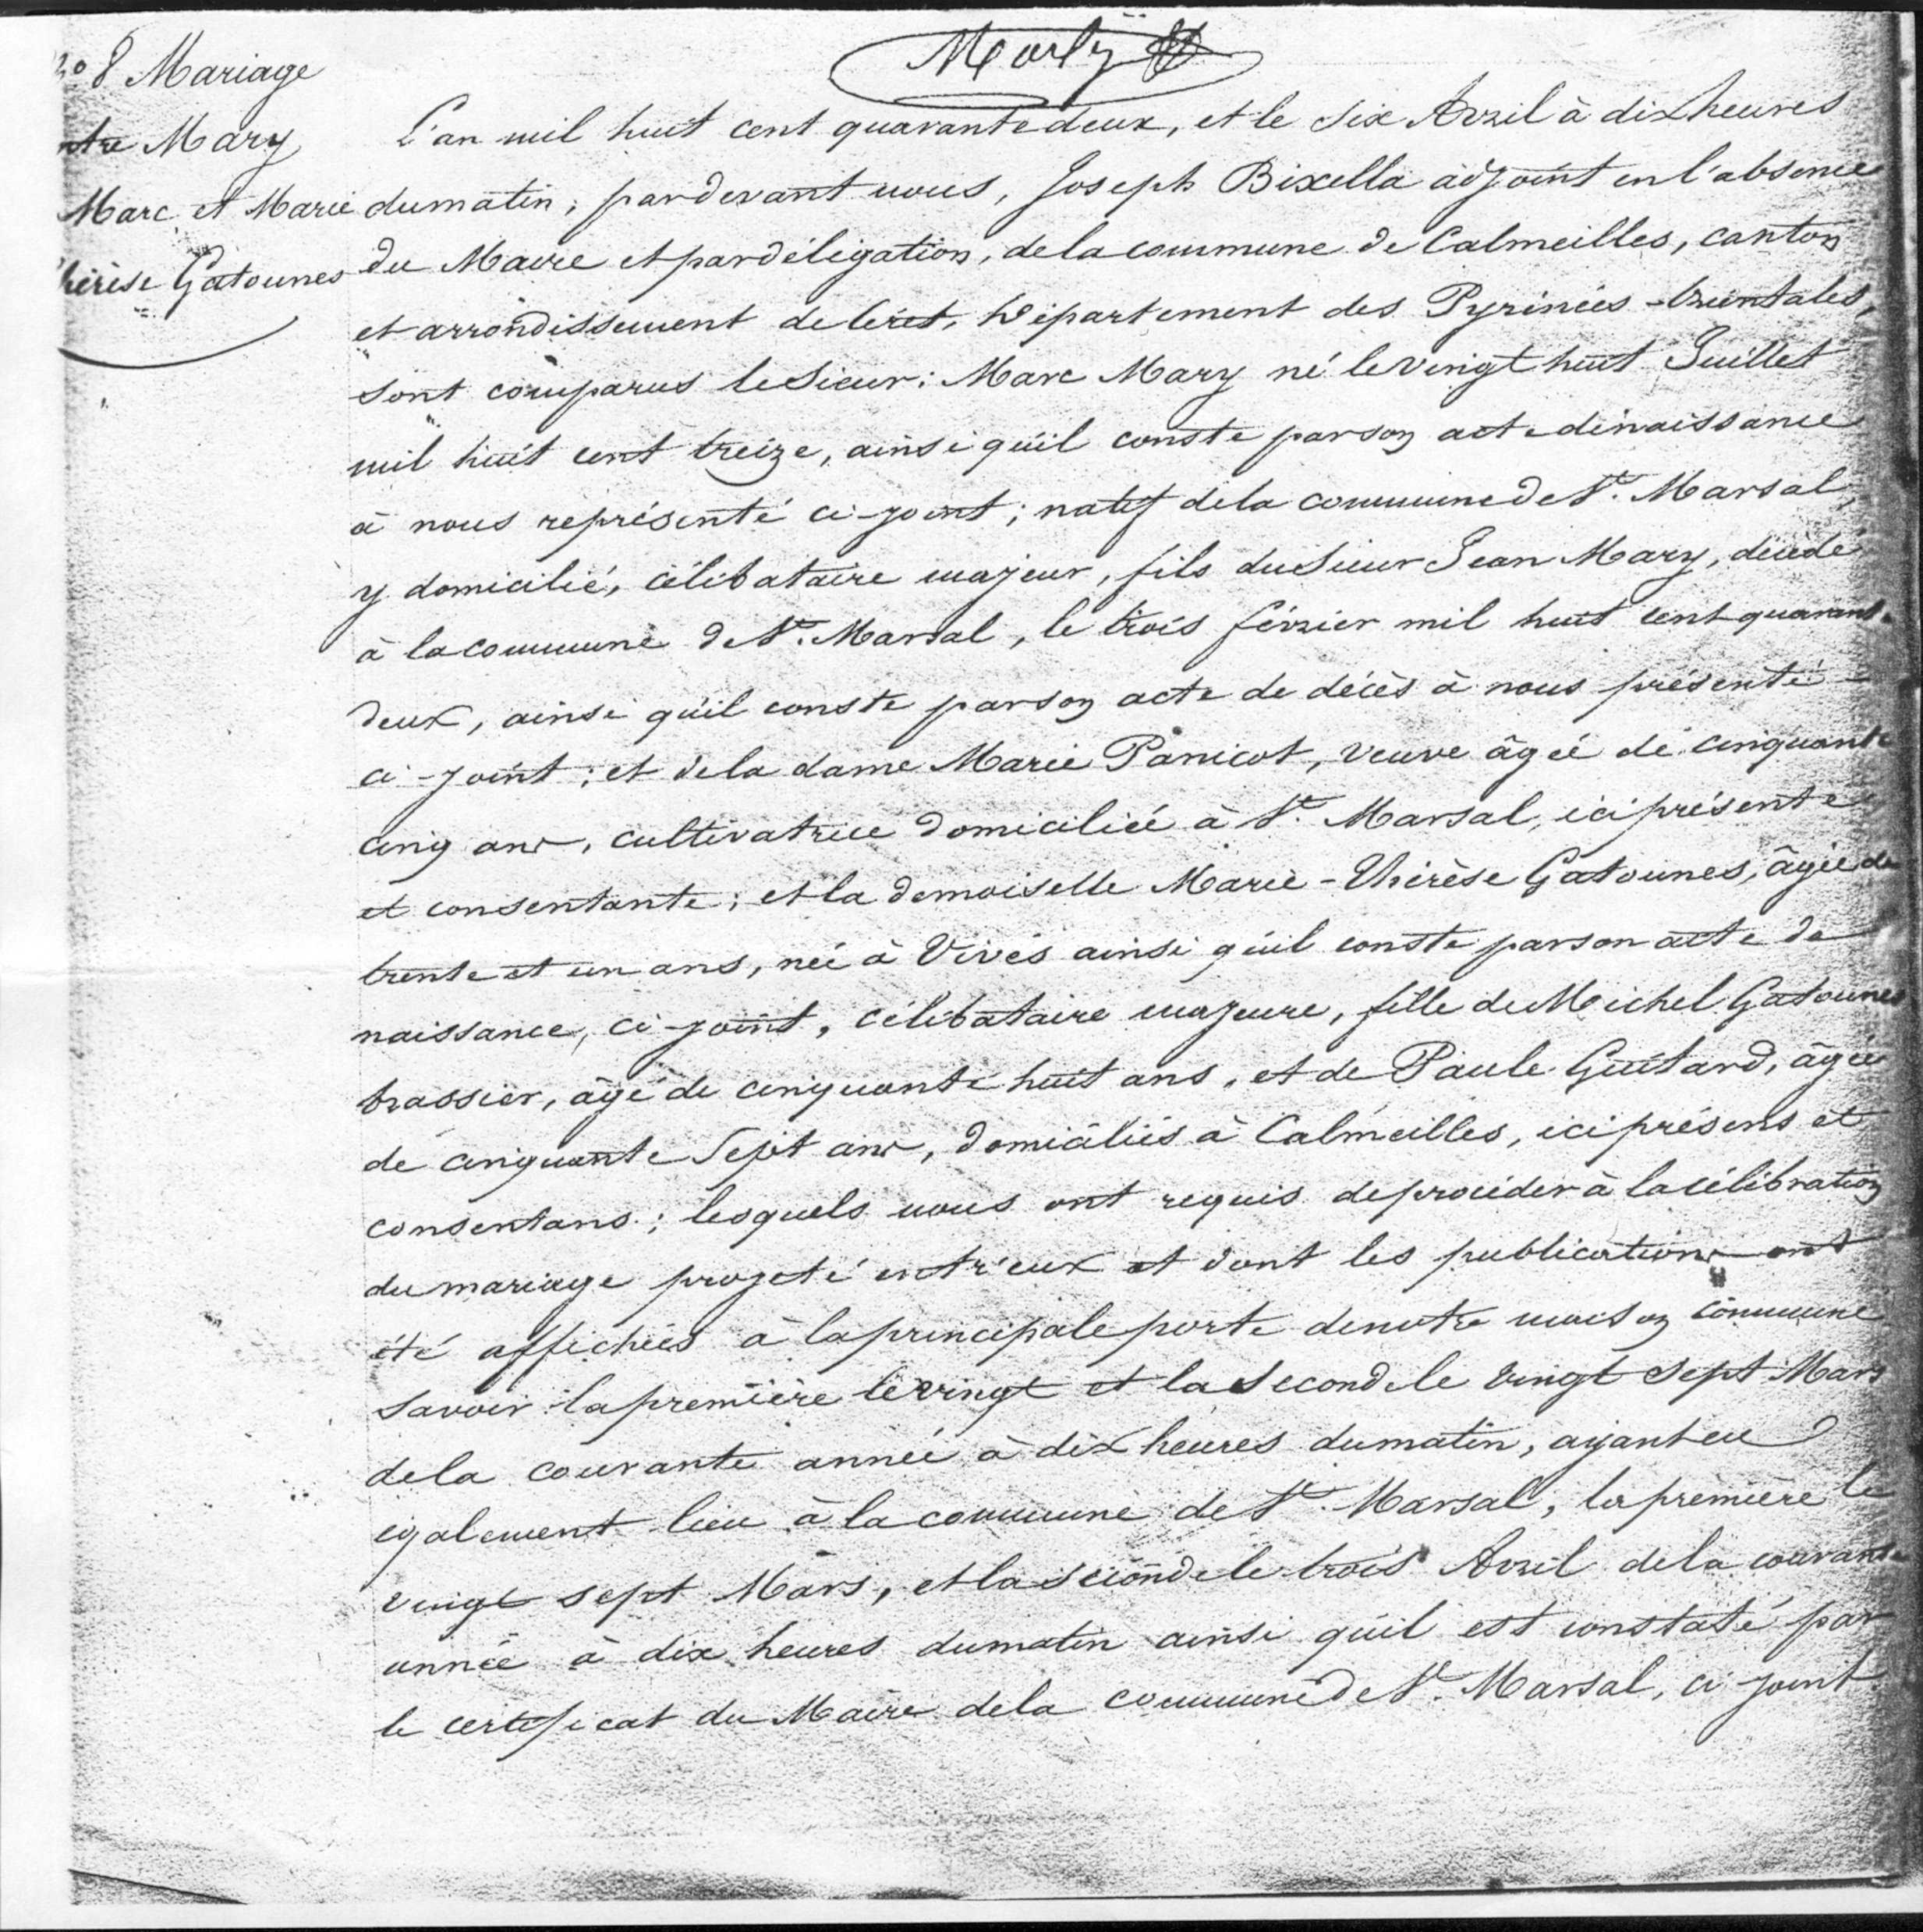 Marty
8 Mariage
ntre Mary
Marc et Marie
hérèse Gatounes
L'an mil huit cent quarante deux, et le six Avril à dix heures
du matin, pardevant nous, Joseph Bixella adjoint en l'absence
du Maire et par déligation, de la commune de Calmeilles, canton
et arrondissement de Céret, Département des Pyrénées-Orientales,
sont comparus le Sieur: Marc Mary né le vingt huit Juillet
mil huit cent treize, ainsi qu'il conste par son acte de naissance
à nous représenté ci-joint; natif de la commune de St. Marsal,
y domicilié, célibataire majeur, fils du Sieur Jean Mary, décédé
à la commune de St. Marsal, le trois février mil huit cent quarante
deux, ainsi qu'il conste par son acte de décès à nous présenté
ci-joint; et de la dame Marie Panicot, veuve âgée de cinquante
cinq ans, cultivatrice domiciliée à St. Marsal, ici présente
et consentante; et la demoiselle Marie-Thérèse Gatounes, âgée de
trente et un ans, née à Vivès ainsi qu'il conste par son acte de
naissance, ci-joint, célibataire majeure, fille de Michel Gatounes
brassier, âgé de cinquante huit ans, et de Paule Guitard, âgée
de cinquante sept ans, domiciliés à Calmeilles, ici présens et
consentans; lesquels nous ont requis de procéder à la célébration
du mariage projeté entr'eux et dont les publications ont
été affichées à la principale porte de notre maison commune
savoir: la première le vingt et la seconde le vingt sept Mars
de la courante année à dix heures du matin, ayant eu
également lieu à la commune de St. Marsal, la première le
vingt sept Mars, et la seconde le trois Avril de la courante
année à dix heures du matin ainsi qu'il est constaté par
le certificat du Maire de la commune de St. Marsal, ci-joint.